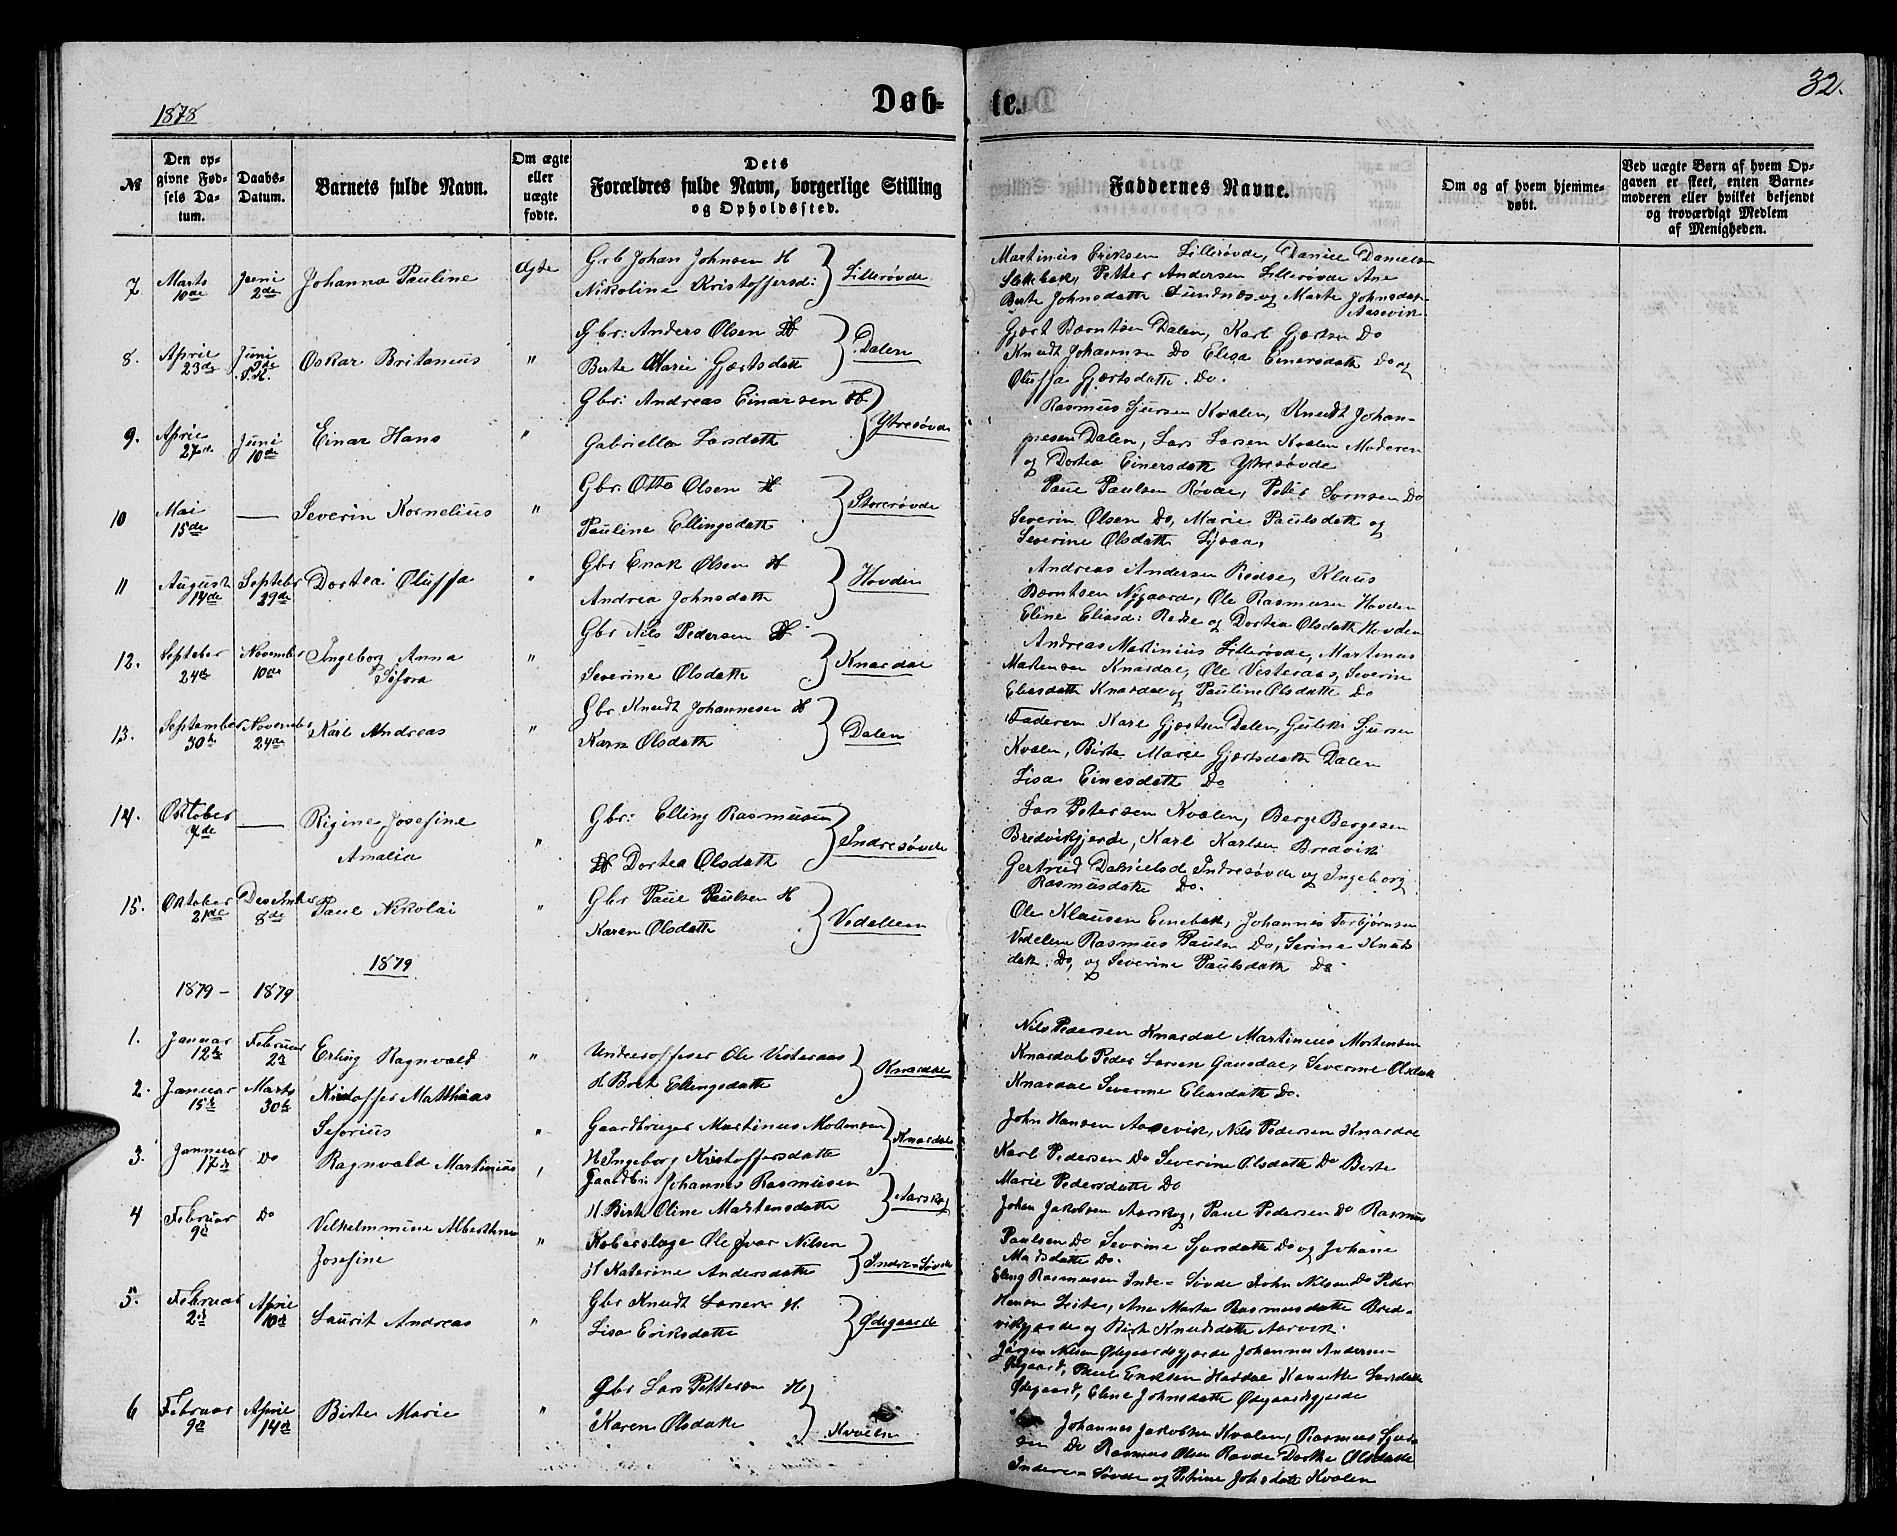 32.
1878
Døb-
te.
№
Den op-
givne Fød-
sels Da-
tum.
Daabs-
Datum.
Barnets fulde Navn.
Om ægte
eller
uægte
fødte.
Dets
Forældres fulde Navn, borgerlige Stilling
og Opholdssted.
Faddernes Navne.
Om og af hvem hjemme-
døbt.
Ved uægte Børn af hvem Op-
gaven er skeet, enten Barne-
moderen eller hvilket bekjendt
og troværdigt Medlem
af Menigheden.
7 Marts 10de Juni 2de Johanna Pauline Ægte
Gbr Johan Johnsen H
Nikoline Kristoffersd: Lillerøvde
Martinius Eriksen Lillerøvde, Daniel Daniels
Petter Andersen Lillerøvde Ane
Berte Johnsdatte Sundnæs og Marte Johnsdat
Aasevik
8. April 23de Juni 9de Oskar Britanius "
Gbr: Anders Olsen H
Berte Marie Gjærtsdatt Dalen
Gjært Bærntsen Dalen, Karl Gjærtsen Do
Knudt Johannsen Do Elisa Einersdatte Do og
Oluffa Gjærtsdatte Do.
9. April 27de Juni 10de Einar Hans "
Gbr: Andreas Einarsen H
Gabriella Larsdatte Ytresøvde
Rasmus Sjursen Kvalen, Knudt Johan-
nesen Dalen, Lars Larsen Kvalen Moderen
og Dortea Einersdatte Ytresøvde
10 Mai 15de — Severin Kornelius "
Gbr: Otto Olsen H
Pauline Ellingsdatte Storerøvde
Paul Paulsen Røvde, Peter Do
Severin Olsen Do, Marie Paulsdatte og
Severine Olsdatte
11 August 14de Septebr 29de Dortea Oluffa "
Gbr Enok Olsen H
Andrea Johnsdatte Hovden
Andreas Andersen Rødse, Klaus
Bærntsen Nygaard, Ole Rasmusen Hovden
Eline Eliasd: Rødse og Dortea Olsdatte Hovden
12. Septeber 24de November 10de Ingeborg Anna
Sefora "
Gbr Nils Pedersen H
Severine Olsdatte Knardal
Andreas Martinius Lillerøvde, Martinus
Martensen Knardal, Ole Vesteraas, Severin
Eliasdatte Knardal og Pauline Olsdatte Do
13. September 30te November 24de Karl Andreas "
Gbr. Knudt Johannesen H
Karn Olsdatte Dalen
Faderen Karl Gjærtsen Dalen Sjursen
Kvalen, Birte Marie Gjærtsdatte Dalen
Lisa Einesdatte Do
14. Oktober 7de — Rigine Josefine
Amalia "
Gbr: Elling Rasmusen
H Dortea Olsdatte Indresøvde
Lars Petersen Kvalen, Berge Bergesen
Bredvikgjerde, Karl Karlsen Bredvik
Gertrud Danielsd Indresøvde og Ingeborg
Rasmusdatte Do.
15. Oktober 21de Desember 8de Paul Nikolai "
Gbr Paul Paulsen H
Karen Olsdatte Vedellem
Ole Klausen Einebak, Johannes Torbjørnsen
Vedelem Rasmus Paulsen Do, Serine Knuds
datte Do, og Severine Paulsdatte Do
1879
1879 - 1879
1. Januar 12te Februar 2de Erling Ragnvald "
Underoffiser Ole Vesteraas
H Birt Ellingsdatte Knardal
Nils Pedersen Knardal Martinius Mortensen
Knardal Peder Larsen Gausdal, Severine Olsdatte
Knardal Severine Eliasdatte Do.
2. Januar 15de Marts 30te Kristoffer Matthias
Seforius "
Gaardbruger Martinus Mortensen
H Ingeborg Kristoffersdatte Knardal
John Hansen Aasevik, Nils Pedersen Knardal
Karl Pedersen Do Severine Olsdatte Do Berte
Marie Pedersdatte Do
3. Jannuar 17de Do Ragnvald Martinius
Gaardbr: Johannes Rasmusen
H. Birt Oline Martensdatte Aarskog
Johan Jakobsen Aarskog, Paul Pedersen Do Rasmus
Paulsen Do Severine Sjursdatte Do og Johane
Madsdatte Do.
4 Februar 9de Do Vilhelmmine Alberthine
Josefine "
Koberslage Ole Ivar Nilsen
H Katerine Andersdatte Indre-Søvde
Eling Rasmusen Indre-Søvde John Nilsen Do Peder
Hansen Ane Marta Rasmusdatte Bred-
vikgjærde og Birte Knudsdatte Aarvik.
5. Februar 2de April 10de Laurit Andreas "
Gbr Knudt Larsen H.
Lisa Eriksdatte Ødegaard
Jørgen Nilsen Ødegaardsgjerde Johannes Andersen
Ødegaard, Paul Eriksen Haddal Larsdatte
Ødegaard, Eline Johnsdatte Ødegaardsgjerde
6 Februar 9de April 14de Birte Marie "
Gbr Lars Pettersen H
Karen Olsdatte Kvalen
Johannes Jakobsen Kvalen, Rasmus Sjur
sen Do Rasmus Olsen Røvde Dorthe Olsdatte
Indere-Søvde og Petrine Johsdatte Kvalen